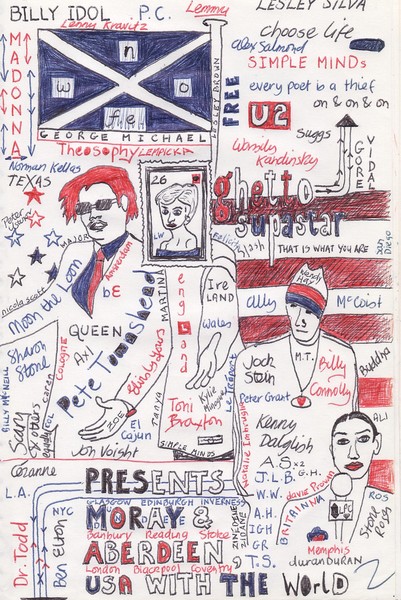 BILLY IDOL
P.C.
Lemmy
LESLEY SILVA
Lenny Kravitz
choose life
MADONNA
n
w
o
wfeo
LESLEY BROWN
Alex Salmond
SIMPLE MINDS
FREE
every poet is a thief
on & on & on
U2
GEORGE MICHAEL
Suggs
Theosophy
LEMPICKA
Wassily Kandinsky
GORE VIDAL
Norman Kellas
TEXAS
26
ghetto
supastar
Peter Gunn
LW
Felicity
Slash
THAT IS WHAT YOU ARE
San Diego
MAJOR
Amsterdam
nicola scott
Moon the Loon
bE
MARTIN
england
IRELAND
Wendy Hay
Ally
McCoist
QUEEN
Pete Townshend
Wales
Sharon Stone
Axl
Cologne
Thirty years
Kylie Minogue
Le Tréport
M.T.
Jock Stein
Billy Connolly
Buddha
Peter Grant
BILLY McNEILL
Karen
COL
Scary
& others
equally
ZOE
TANYA
Toni Braxton
Natalie Imbruglia
Kenny Dalglish
ALI
El Cajun
Jon Voight
SIMPLE MINDS
A.S x2
G.H.
J.L.B.
Cezanne
ZINEDINE ZIDANE
W.W.
davie Provan
ROS
L.A.
NYC
PRESENTS
A.H.
IGH
BRITANNIA
LPC
Stone Roses
GLASGOW EDINBURGH INVERNESS
MORAY &
GR
Dr. Todd
Ben Elton
Banbury Reading Stoke
ABERDEEN
T.S.
Memphis
duranDURAN
London Blackpool Coventry
USA WITH THE WORLD